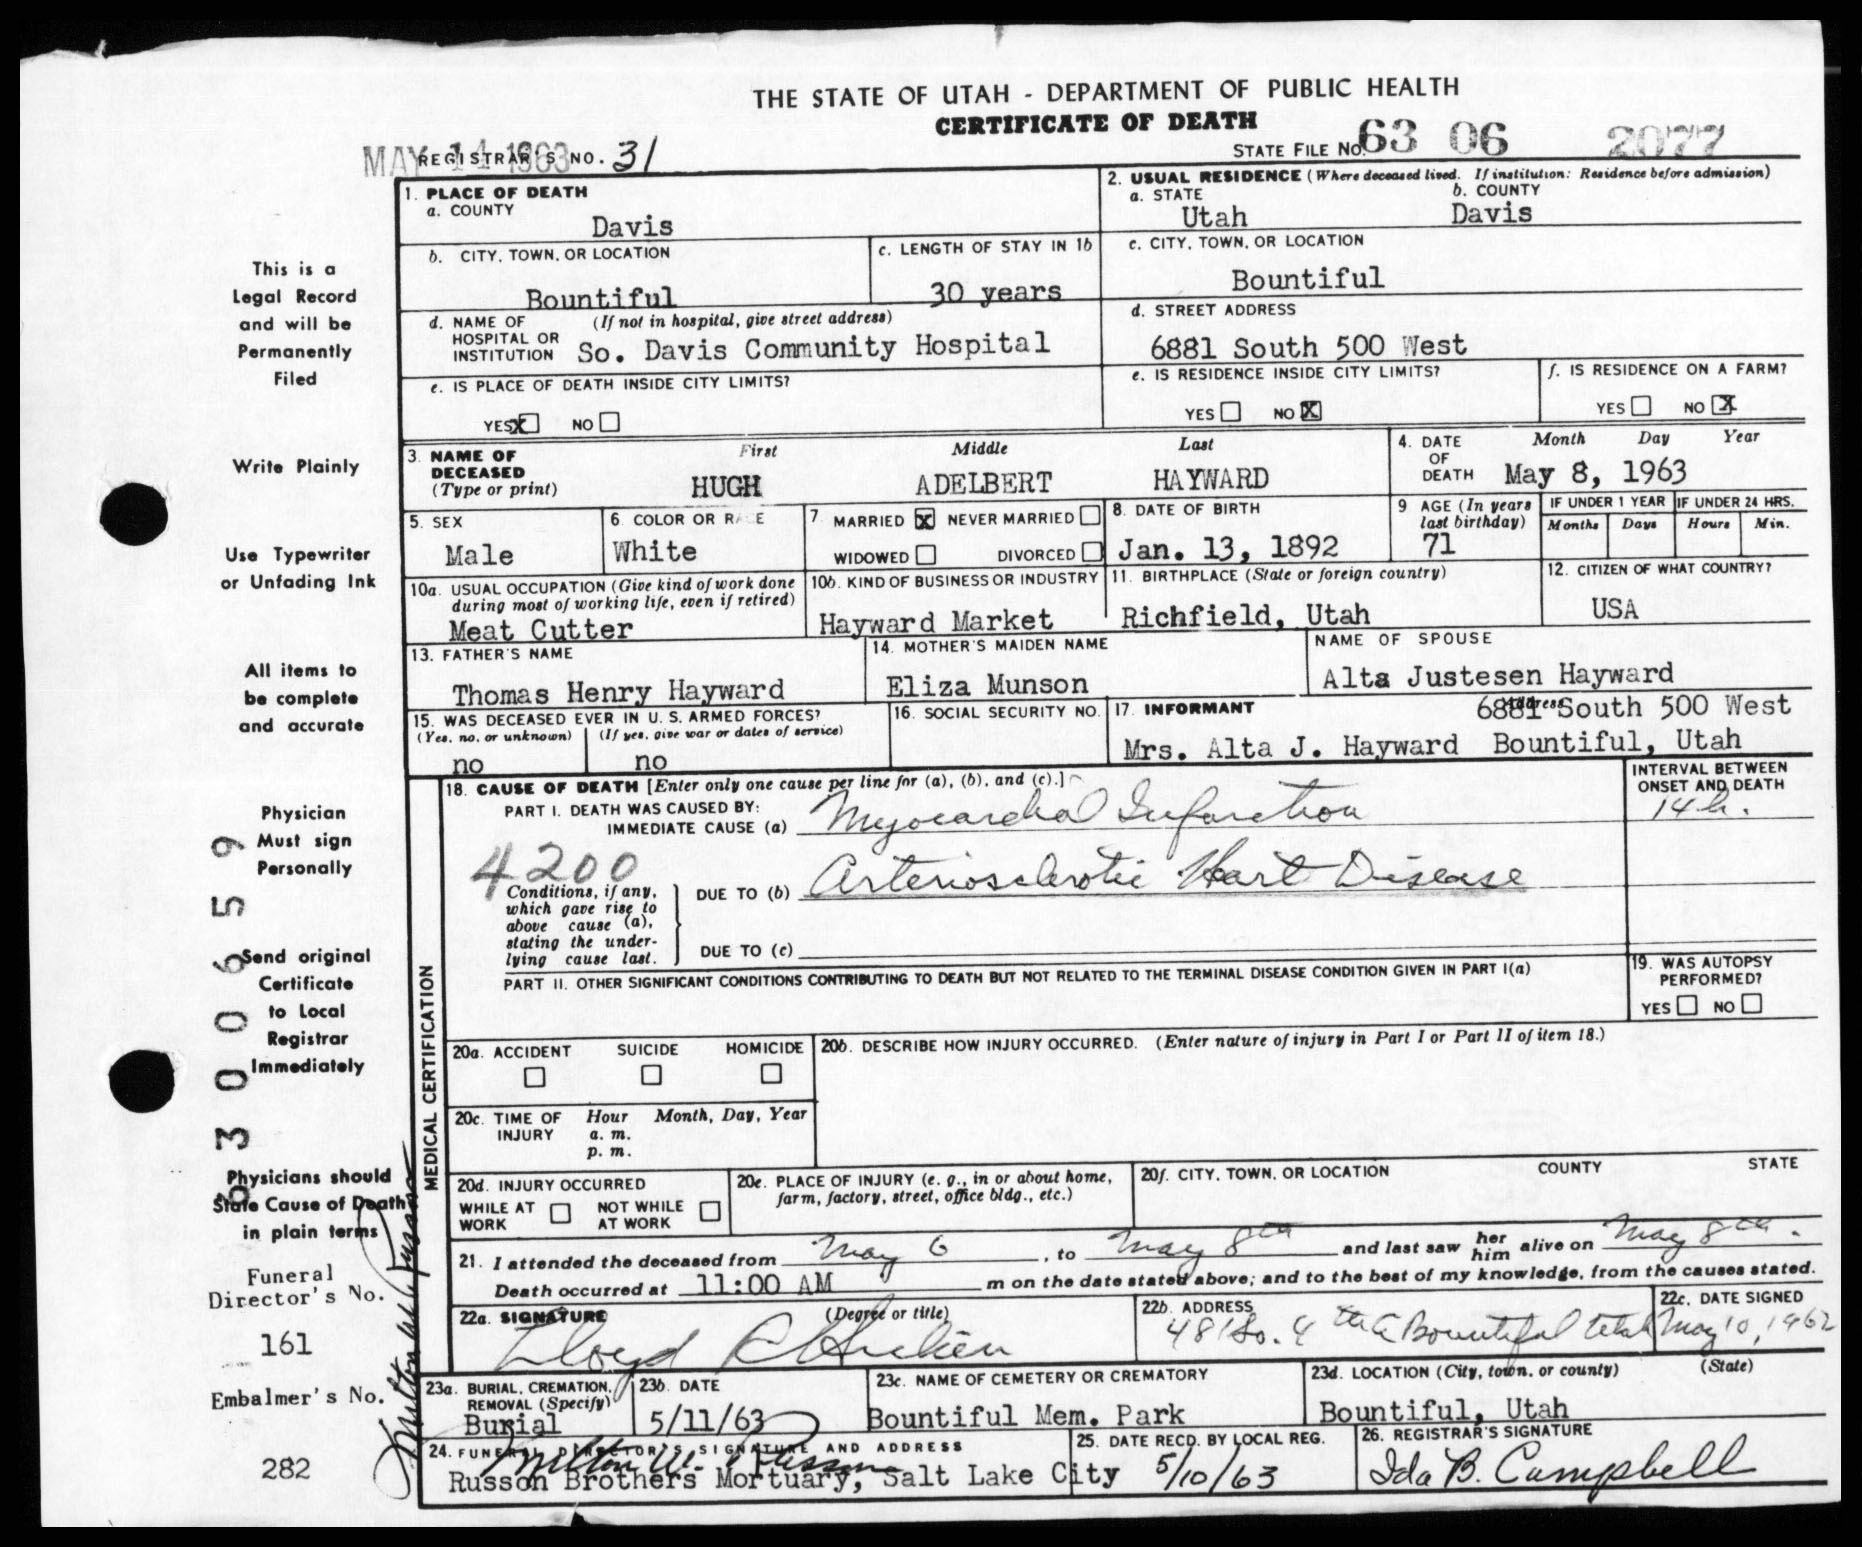 THE STATE OF UTAH - DEPARTMENT OF PUBLIC HEALTH
CERTIFICATE OF DEATH
MAY 14 1963
REGISTRAR'S NO. 31
STATE FILE NO. 63 06 2077
1. PLACE OF DEATH
a. COUNTY
Davis
2. USUAL RESIDENCE (Where deceased lived. If institution: Residence before admission)
a. STATE
Utah
b. COUNTY
Davis
b. CITY, TOWN, OR LOCATION
Bountiful
c. LENGTH OF STAY IN 1b
30 years
c. CITY, TOWN, OR LOCATION
Bountiful
d. NAME OF HOSPITAL OR INSTITUTION (If not in hospital, give street address)
So. Davis Community Hospital
d. STREET ADDRESS
6881 South 500 West
e. IS PLACE OF DEATH INSIDE CITY LIMITS?
YES X NO
e. IS RESIDENCE INSIDE CITY LIMITS?
YES NO X
f. IS RESIDENCE ON A FARM?
YES NO X
3. NAME OF DECEASED (Type or print)
First Middle Last
HUGH ADELBERT HAYWARD
4. DATE OF DEATH
Month Day Year
May 8, 1963
5. SEX
Male
6. COLOR OR RACE
White
7. MARRIED X NEVER MARRIED
WIDOWED DIVORCED
8. DATE OF BIRTH
Jan. 13, 1892
9 AGE (In years last birthday)
71
IF UNDER 1 YEAR
Months Days
IF UNDER 24 HRS.
Hours Min.
10a. USUAL OCCUPATION (Give kind of work done during most of working life, even if retired)
Meat Cutter
10b. KIND OF BUSINESS OR INDUSTRY
Hayward Market
11. BIRTHPLACE (State or foreign country)
Richfield, Utah
12. CITIZEN OF WHAT COUNTRY?
USA
13. FATHER'S NAME
Thomas Henry Hayward
14. MOTHER'S MAIDEN NAME
Eliza Munson
NAME OF SPOUSE
Alta Justesen Hayward
15. WAS DECEASED EVER IN U. S. ARMED FORCES?
(Yes, no, or unknown) (If yes, give war or dates of service)
no no
16. SOCIAL SECURITY NO.
17. INFORMANT
Address
6881 South 500 West
Mrs. Alta J. Hayward Bountiful, Utah
MEDICAL CERTIFICATION
18. CAUSE OF DEATH [Enter only one cause per line for (a), (b), and (c).]
PART I. DEATH WAS CAUSED BY:
IMMEDIATE CAUSE (a) Myocardial Infarction
INTERVAL BETWEEN ONSET AND DEATH
14 h.
4200
Conditions, if any, which gave rise to above cause (a), stating the underlying cause last.
DUE TO (b) Arteriosclerotic Heart Disease
DUE TO (c)
PART II. OTHER SIGNIFICANT CONDITIONS CONTRIBUTING TO DEATH BUT NOT RELATED TO THE TERMINAL DISEASE CONDITION GIVEN IN PART I(a)
19. WAS AUTOPSY PERFORMED?
YES NO
20a. ACCIDENT SUICIDE HOMICIDE
20b. DESCRIBE HOW INJURY OCCURRED. (Enter nature of injury in Part I or Part II of item 18.)
20c. TIME OF INJURY
Hour Month, Day, Year
a. m.
p. m.
20d. INJURY OCCURRED
WHILE AT WORK NOT WHILE AT WORK
20e. PLACE OF INJURY (e. g., in or about home, farm, factory, street, office bldg., etc.)
20f. CITY, TOWN, OR LOCATION COUNTY STATE
21. I attended the deceased from May 6, to May 8th and last saw her him alive on May 8th.
Death occurred at 11:00 AM m on the date stated above; and to the best of my knowledge, from the causes stated.
22a. SIGNATURE (Degree or title)
Lloyd
22b. ADDRESS
481 So. 4th E Bountiful Utah
22c. DATE SIGNED
May 10, 1962
23a. BURIAL, CREMATION, REMOVAL (Specify)
Burial
23b. DATE
5/11/63
23c. NAME OF CEMETERY OR CREMATORY
Bountiful Mem. Park
23d. LOCATION (City, town, or county) (State)
Bountiful, Utah
24. FUNERAL DIRECTOR'S SIGNATURE AND ADDRESS
Milton W. Russon
Russon Brothers Mortuary, Salt Lake City
25. DATE RECD. BY LOCAL REG.
5/10/63
26. REGISTRAR'S SIGNATURE
Ida B. Campbell
This is a
Legal Record
and will be
Permanently
Filed
Write Plainly
Use Typewriter
or Unfading Ink
All items to
be complete
and accurate
Physician
Must sign
Personally
Send original
Certificate
to Local
Registrar
Immediately
Physicians should
State Cause of Death
in plain terms
Funeral
Director's No.
161
Embalmer's No.
282
Milton W. Russon